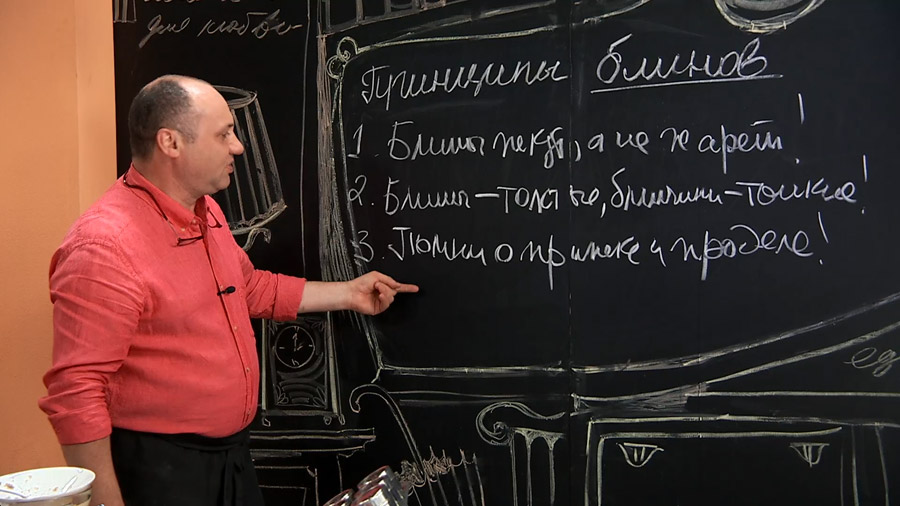 для любви
Принципы блинов
1. Блины пекут, а не жарят!
2. Блины – толстые, блинчики – тонкие!
3. Помни о припёке и проделе!
ед